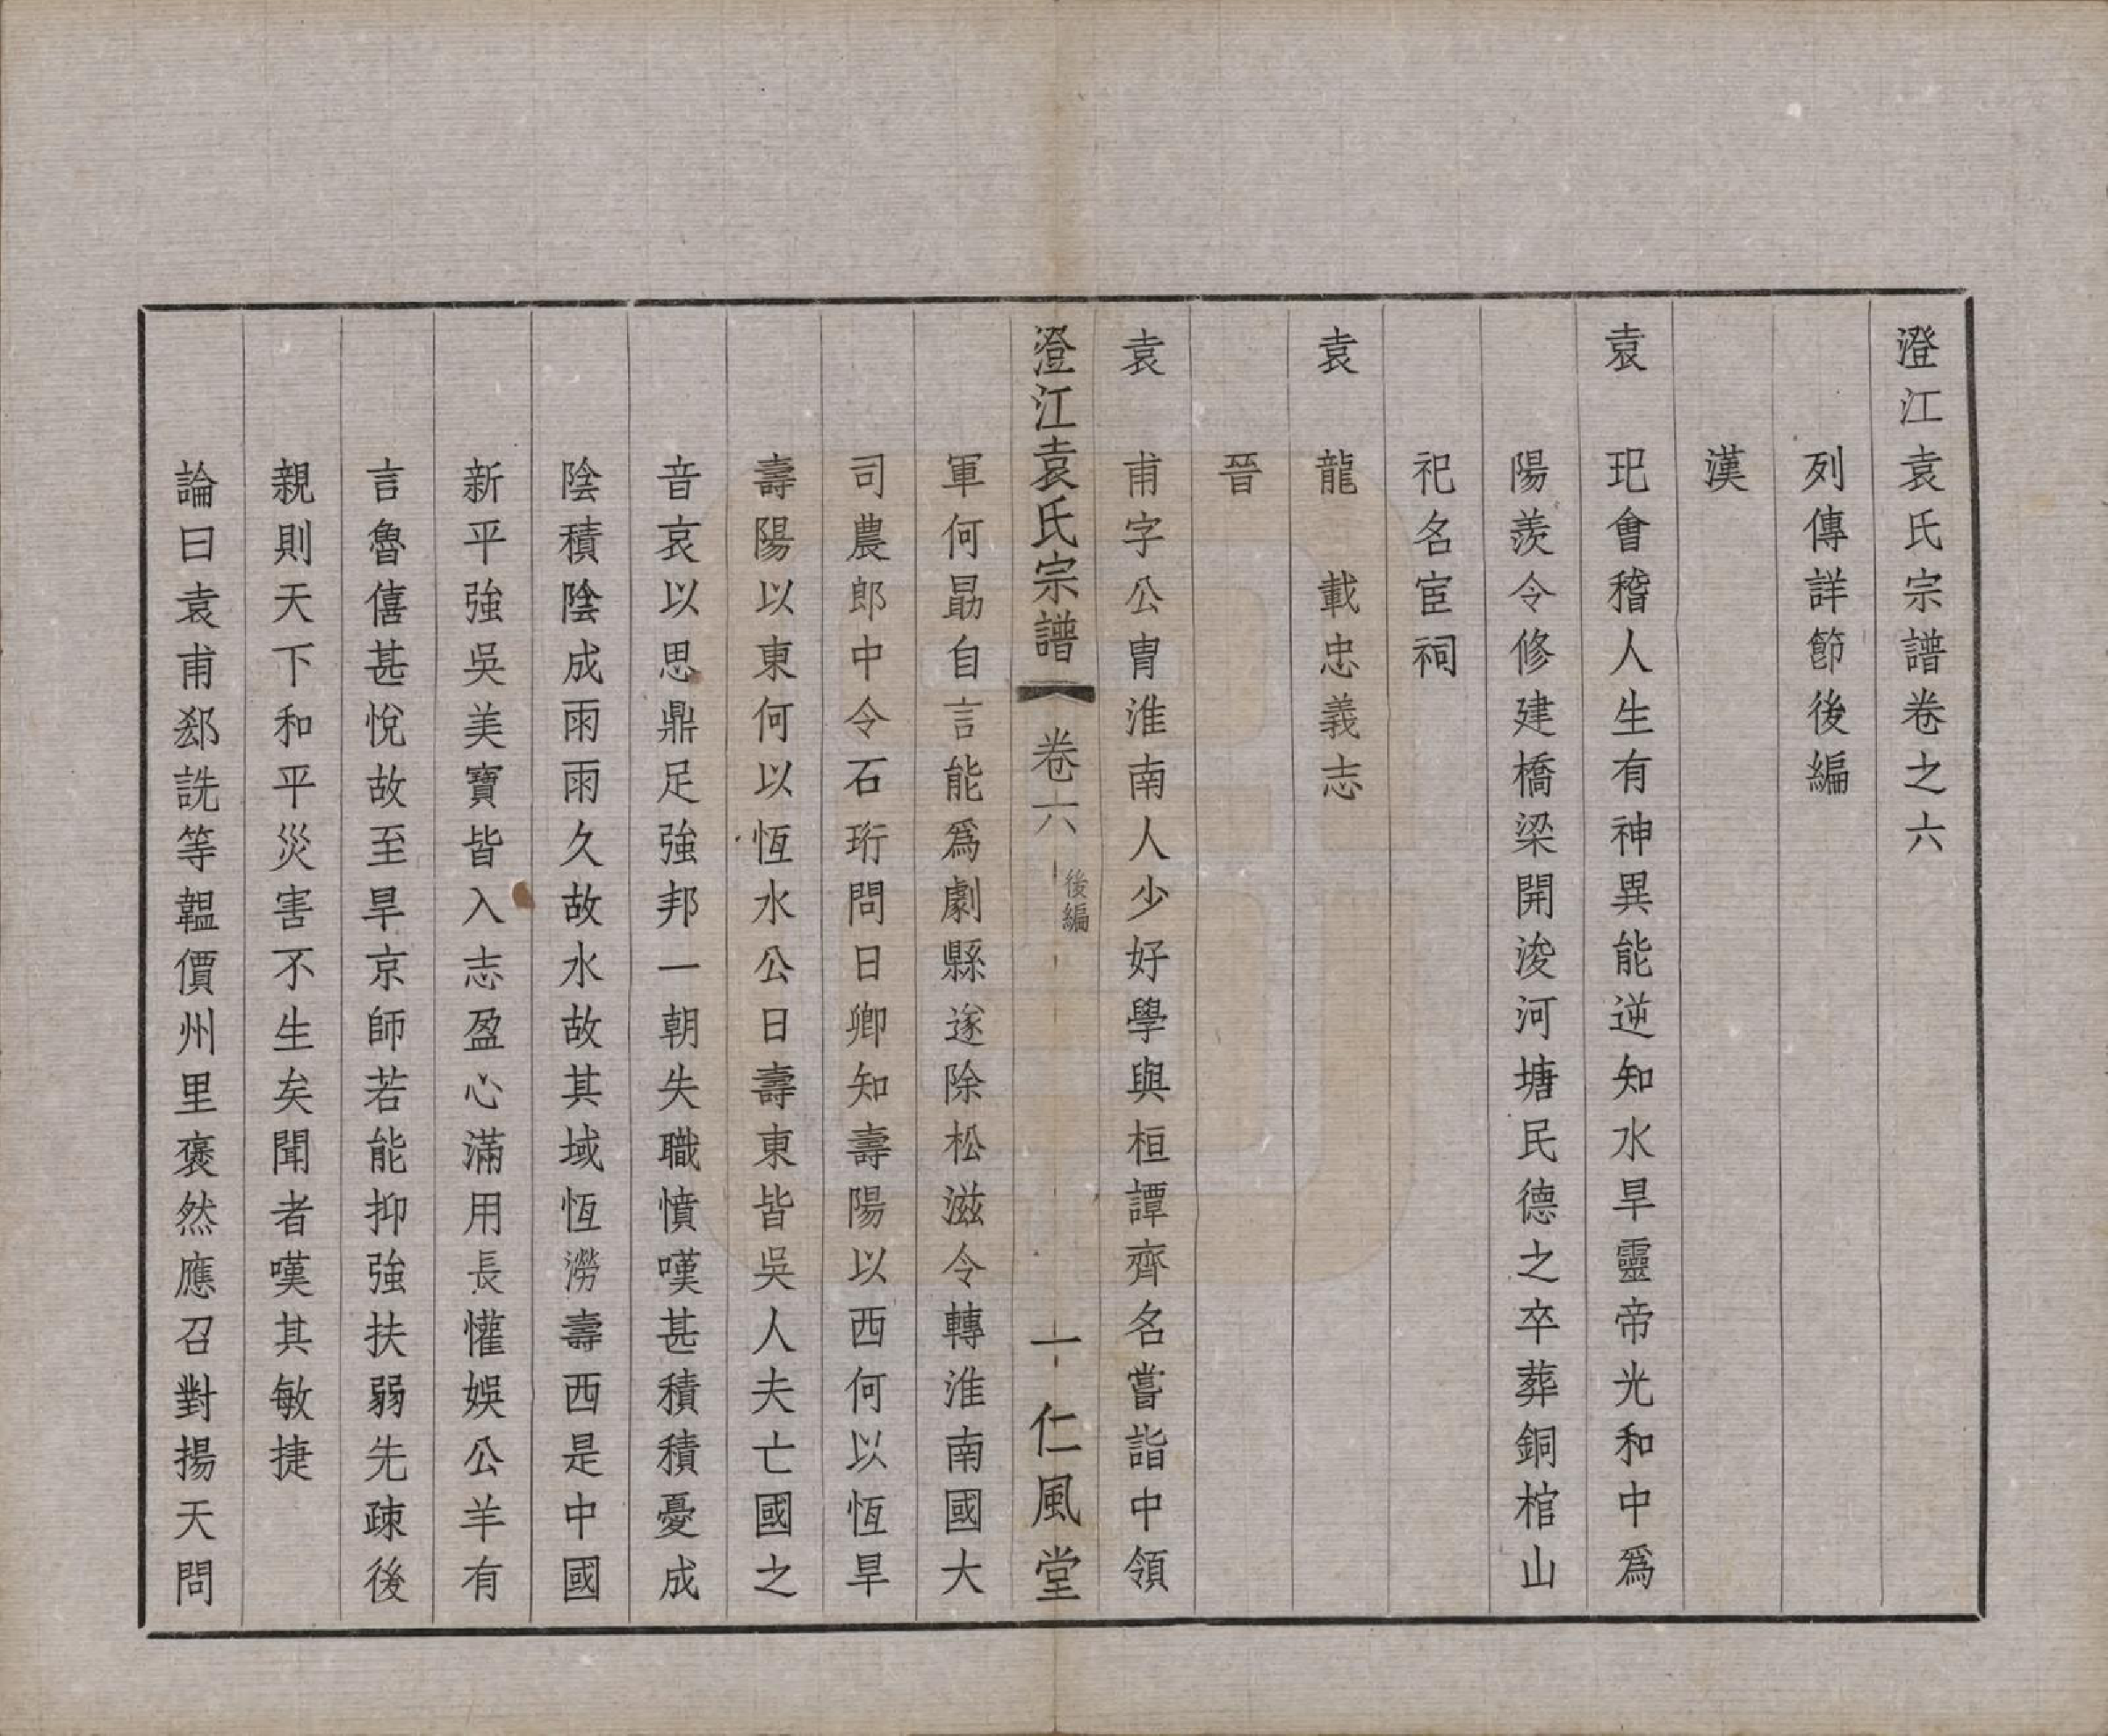 澄江袁氏宗譜卷之六
列傳詳節後編
漢
袁　玘會稽人生有神異能逆知水旱靈帝光和中爲
陽羨令修建橋梁開浚河塘民德之卒葬銅棺山
祀名宦祠
袁　龍　載忠義志
晉
袁　甫字公冑淮南人少好學與桓譚齊名嘗詣中領
澄江袁氏宗譜　卷六　後編　一　仁風堂
軍何勗自言能爲劇縣遂除松滋令轉淮南國大
司農郎中令石珩問曰卿知壽陽以西何以恆旱
壽陽以東何以恆水公曰壽東皆吳人夫亡國之
音哀以思鼎足強邦一朝失職憤嘆甚積積憂成
陰積陰成雨雨久故水故其域恆澇壽西是中國
新平強吳美寶皆入志盈心滿用長懽娛公羊有
言魯僖甚悅故至旱京師若能抑強扶弱先疎後
親則天下和平災害不生矣聞者嘆其敏捷
論曰袁甫郄詵等韞價州里褒然應召對揚天問